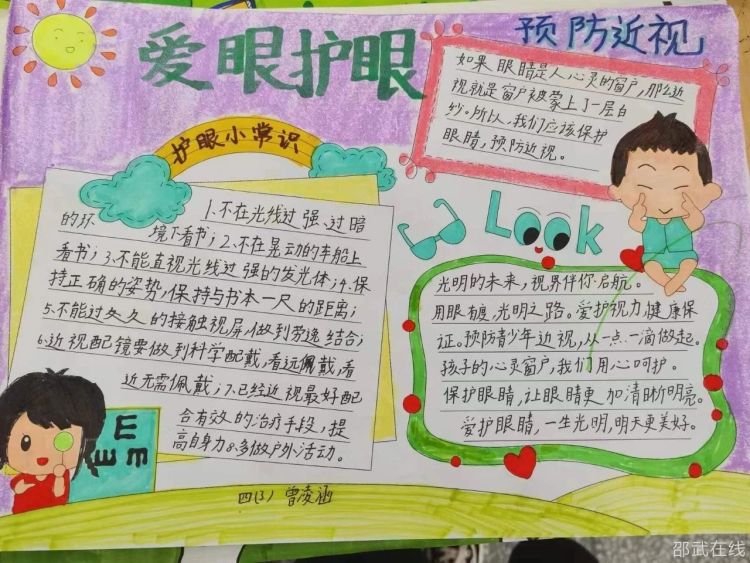 爱眼护眼
预防近视
如果眼睛是人心灵的窗户,那么近
视就是窗户被蒙上了一层白
纱。所以,我们应该保护
眼睛,预防近视。
护眼小常识
1.不在光线过强、过暗
的环境下看书;2.不在晃动的车船上
看书;3.不能直视光线过强的发光体;4.保
持正确的姿势,保持与书本一尺的距离;
5.不能过久久的接触视屏,做到劳逸结合;
6.近视配镜要做到科学配戴,看远佩戴,看
近无需佩戴;7.已经近视最好配
合有效的治疗手段,提
高自身力8.多做户外活动。
Look
光明的未来,视界伴你启航。
用眼有度,光明之路。爱护视力,健康保
证。预防青少年近视,从一点一滴做起。
孩子的心灵窗户,我们用心呵护。
保护眼睛,让眼睛更加清晰明亮。
爱护眼睛,一生光明,明天更美好。
E
E
m
四(3) 曾凌涵
邵武在线